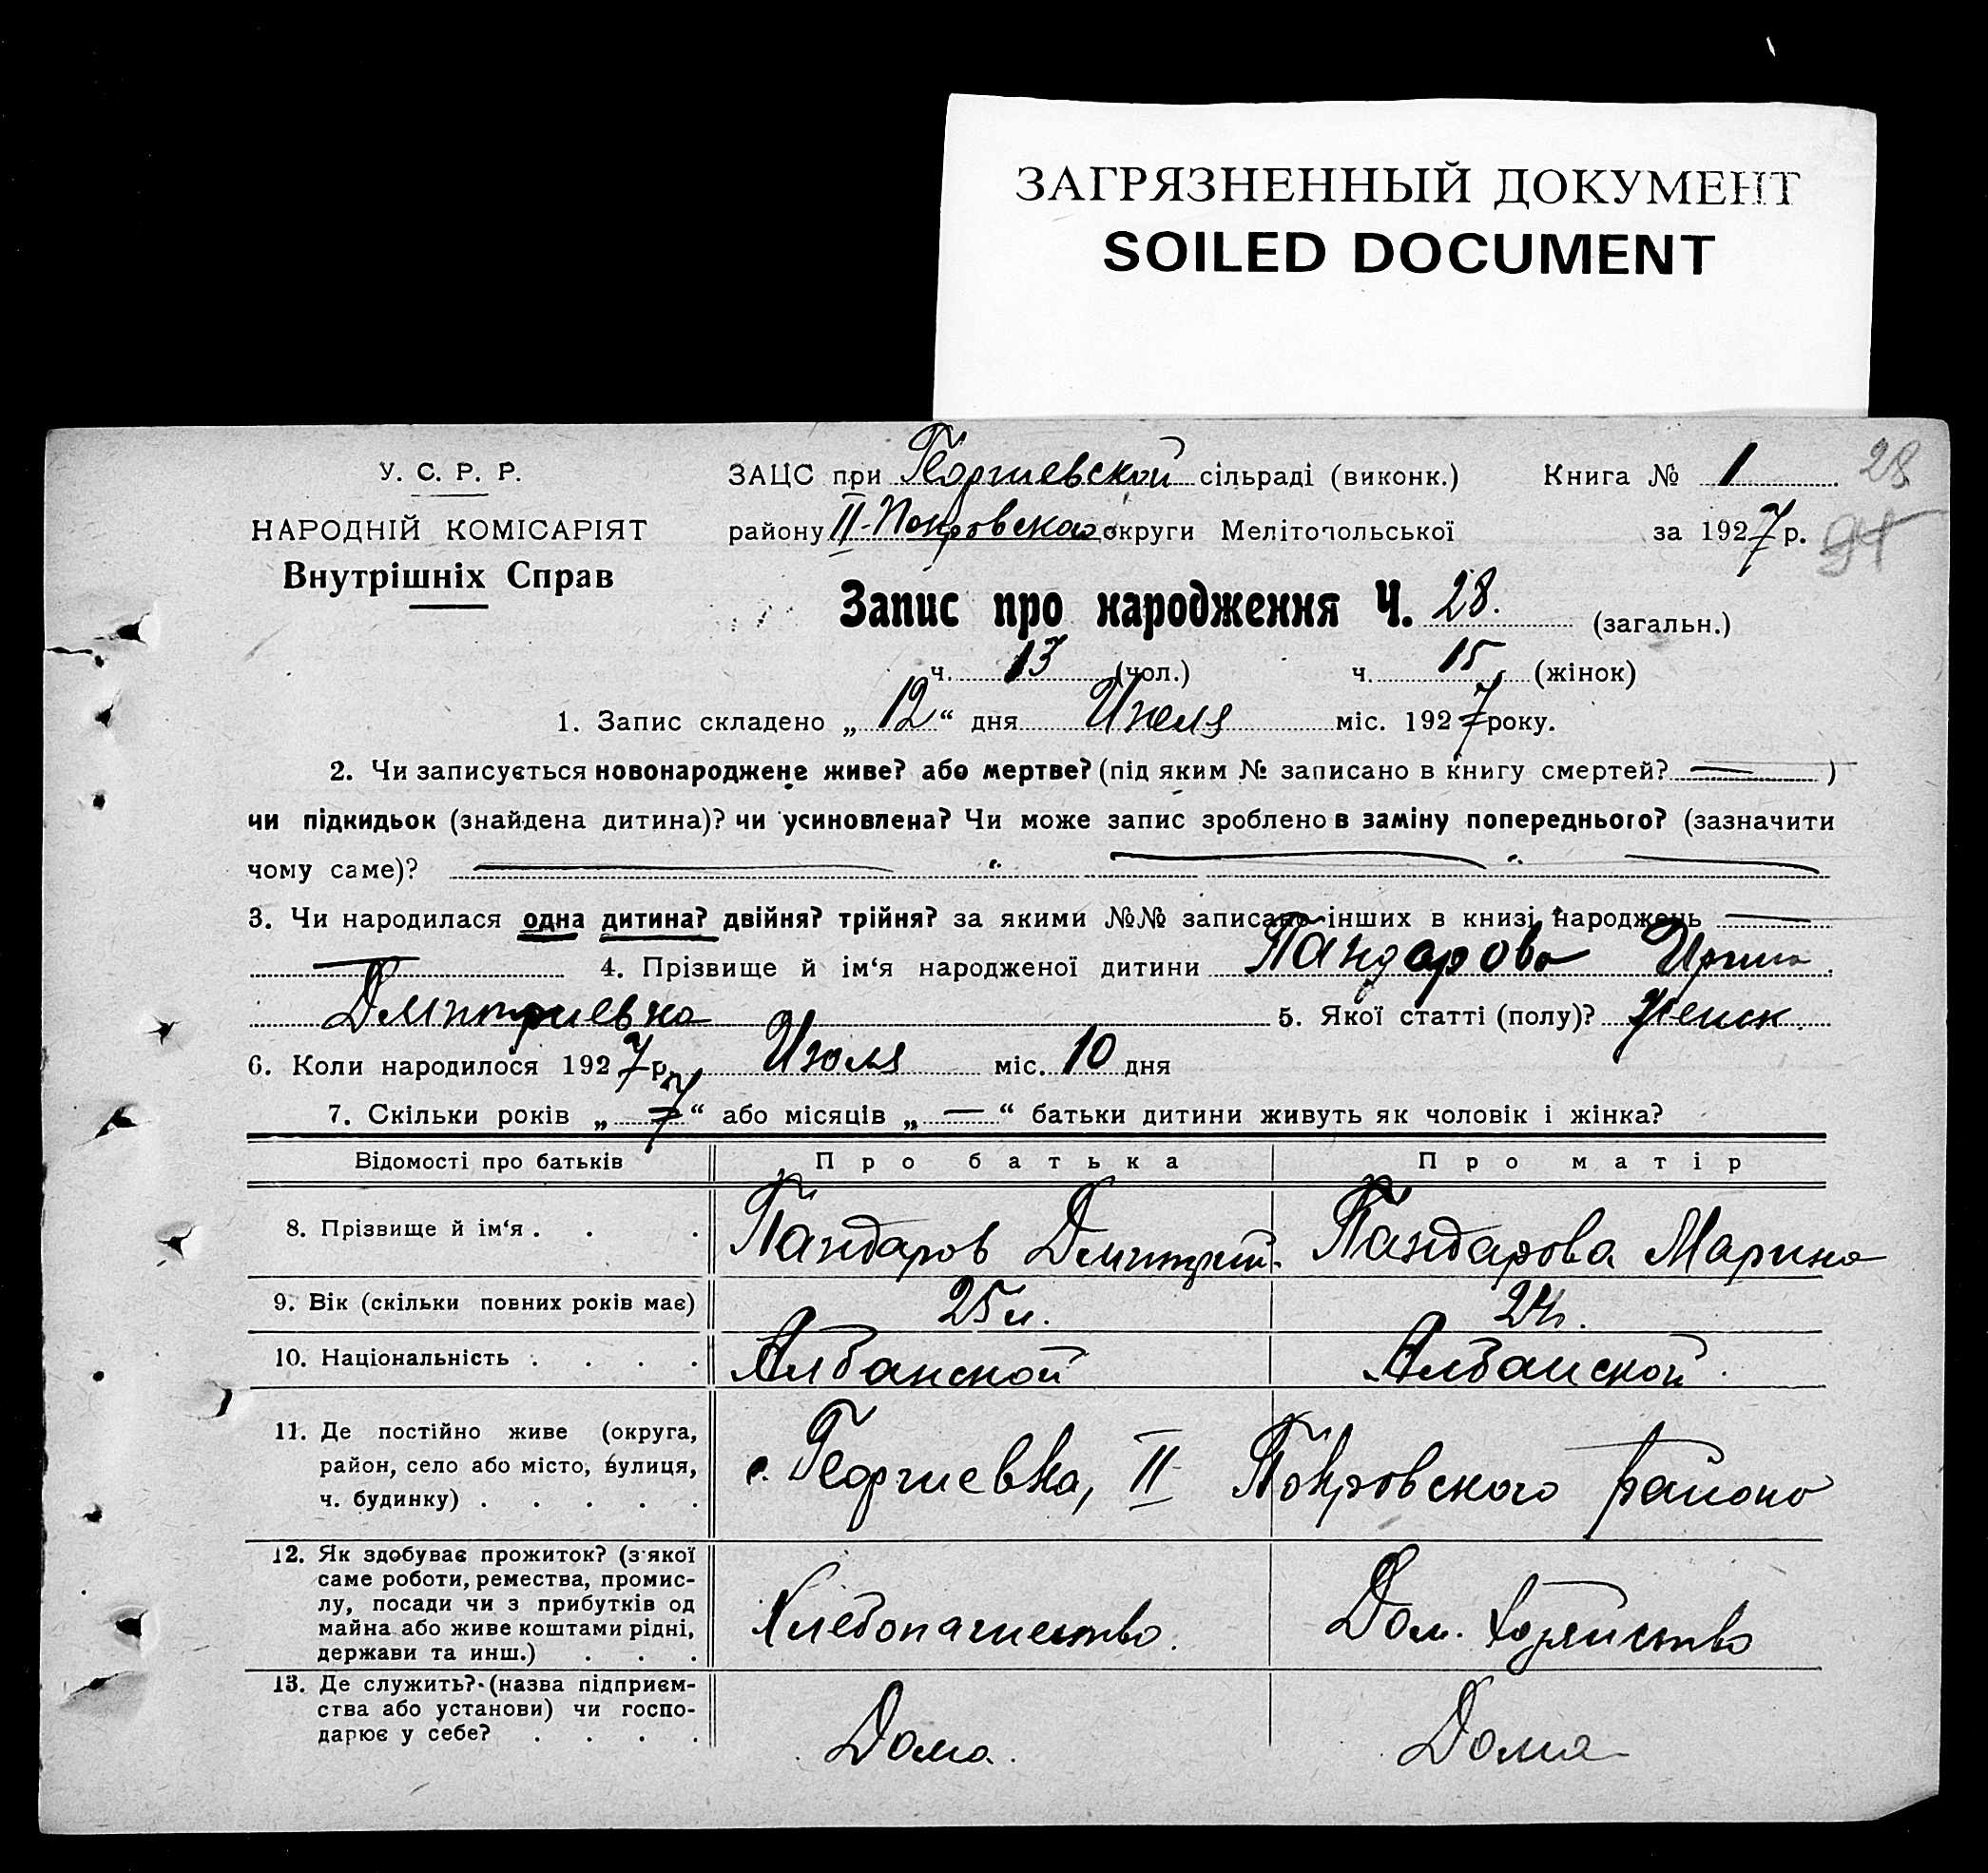 ЗАГРЯЗНЕННЫЙ ДОКУМЕНТ
SOILED DOCUMENT
У. С. Р. Р.
НАРОДНІЙ КОМІСАРІЯТ
Внутрішніх Справ
ЗАЦС при Георгиевской сільраді (виконк.) Книга № 1 28
району II-Покровского округи Мелітопольської за 1927 р.
Запис про народження Ч. 28. (загальн.)
ч. 13 (чол.) ч. 15 (жінок)
1. Запис складено „ 12 “ дня Июля міс. 1927 року.
2. Чи записується новонароджене живе? або мертве? (під яким № записано в книгу смертей? — )
чи підкидьок (знайдена дитина)? чи усиновлена? Чи може запис зроблено в заміну попереднього? (зазначити
чому саме)? — „ — „ —
3. Чи народилася одна дитина? двійня? трійня? за якими №№ записано інших в книзі народжень —
— 4. Прізвище й ім‘я народженої дитини Пандарова Ирина
Дмитриевна 5. Якої статті (полу)? женск.
6. Коли народилося 1927 р. Июля міс. 10 дня
7. Скільки років „ 7 “ або місяців „ — “ батьки дитини живуть як чоловік і жінка?
Відомості про батьків Про батька Про матір
8. Прізвище й ім‘я . . . Пандаров Дмитрий. Пандарова Марина
9. Вік (скільки повних років має) 25 л. 24 г.
10. Національність . . . . Албанской Албанской.
11. Де постійно живе (округа,
район, село або місто, вулиця,
ч. будинку) . . . . .
с. Георгиевка, II Покровского района
12. Як здобуває прожиток? (з якої
саме роботи, ремества, промис-
лу, посади чи з прибутків од
майна або живе коштами рідні,
держави та инш.) . . .
Хлебопашество. Дом. хозяйство
13. Де служить? (назва підприєм-
ства або установи) чи госпо-
дарює у себе? . . . .
Дома. Дома